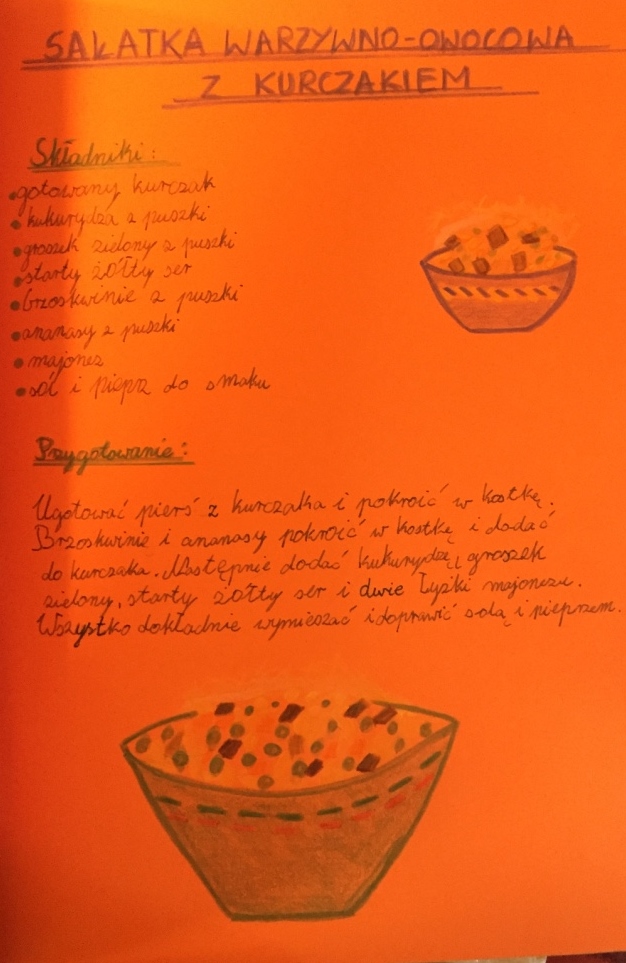 SAŁATKA WARZYWNO-OWOCOWA
Z KURCZAKIEM
Składniki:
• gotowany kurczak
• kukurydza z puszki
• groszek zielony z puszki
• starty żółty ser
• brzoskwinie z puszki
• ananasy z puszki
• majonez
• sól i pieprz do smaku
Przygotowanie:
Ugotować pierś z kurczaka i pokroić w kostkę.
Brzoskwinie i ananasy pokroić w kostkę i dodać
do kurczaka. Następnie dodać kukurydzę, groszek
zielony, starty żółty ser i dwie łyżki majonezu.
Wszystko dokładnie wymieszać i doprawić solą i pieprzem.